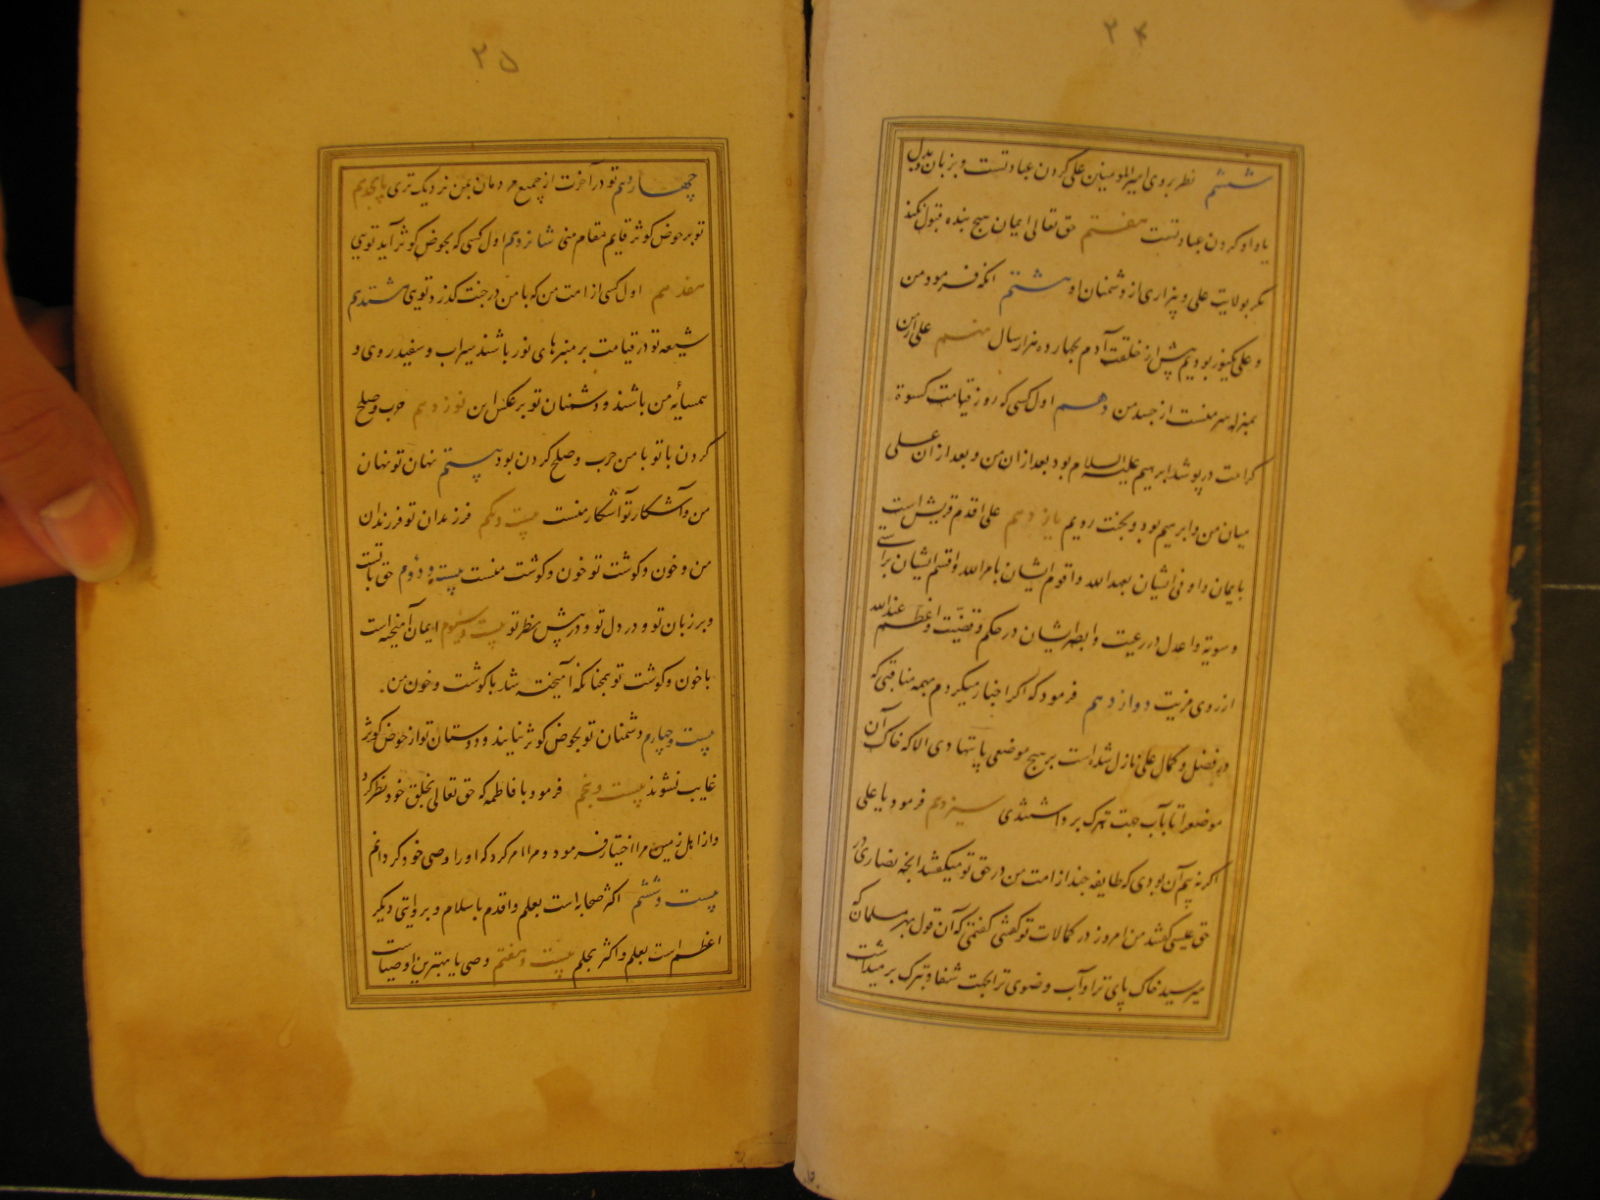 ۲۴
ششم نظر بروی امیرالمومنین علی کردن عبادتست و بزبان و بدل
یاد او کردن عبادتست هفتم حق تعالی ایمان هیچ بنده قبول نکند
مگر بولایت علی و بیزاری از دشمنان او هشتم آنکه فرمود من
و علی یکنور بودیم پیش از خلقت آدم بچهارده هزار سال نهم علی از من
بمنزله سر منست از جسد من دهم اول کسی که روز قیامت کسوة
کرامت در پوشد ابرهیم علیه السلام بود بعد از ان من و بعد از ان علی
میان من و ابرهیم بود و بجنت رویم یازدهم علی اقدم قریش است
بایمان و اوفی ایشان بعهد الله و اقوم ایشان بامر الله و اقسم ایشان براستی
و سویة و اعدل در رعیت و ابصر ایشان در حکم و قضیت و اعظم عند الله
از روی مزیت دوازدهم فرمود که اگر اخبار میکردم بهمه مناقبی که
در فضل و کمال علی نازل شده است بر هیچ موضعی پا ننهادی الا که خاک آن
موضع را تا بآب جهت تبرک برداشتندی سیزدهم فرمود یا علی
اگر نه بیم آن بودی که طایفه چند از امت من در حق تو میگفتند آنچه نصاری در
حق عیسی گفتند من امروز در کمالات تو گفتی گفتمی که آن قول بهر مسلمان که
میرسید خاک پای ترا و آب وضوی ترا بجهت شفا و تبرک برمیداشت
۲۵
چهاردهم تو در آخرت از جمیع مردمان بمن نزدیک تری پانزدهم
تو بر حوض کوثر قایم مقام منی شانزدهم اول کسی که بحوض کوثر آید تویی
هفدهم اول کسی از امت من که با من در جنت گذرد تویی هشتدهم
شیعه تو در قیامت بر منبرهای نور باشند سیراب و سفید روی و
همسایهٔ من باشند و دشمنان تو بر عکس این نوزدهم حرب و صلح
کردن با تو با من حرب و صلح کردن بود بیستم نهان تو نهان
من و آشکار تو آشکار منست بیست و یکم فرزندان تو فرزندان
من و خون و گوشت تو خون و گوشت منست بیست و دوم حق با تست
و بر زبان تو و در دل تو و در پیش نظر تو بیست و سیوم ایمان آمیخته است
با خون و گوشت تو همچنانکه آمیخته شد با گوشت و خون من.
بیست و چهارم دشمنان تو بحوض کوثر نیایند و دوستان تو از حوض کوثر
غایب نشوند بیست و پنجم فرمود با فاطمه که حق تعالی بخلق خود نظر کرد
و از اهل زمین مرا اختیار فرمود و مرا امر کرد که او را وصی خود کردانم
بیست و ششم اکثر صحابه است بعلم و اقدم باسلام و بروایتی دیگر
اعظم است بعلم و اکثر بحلم بیست و هفتم وصی ما بهترین اوصیاست